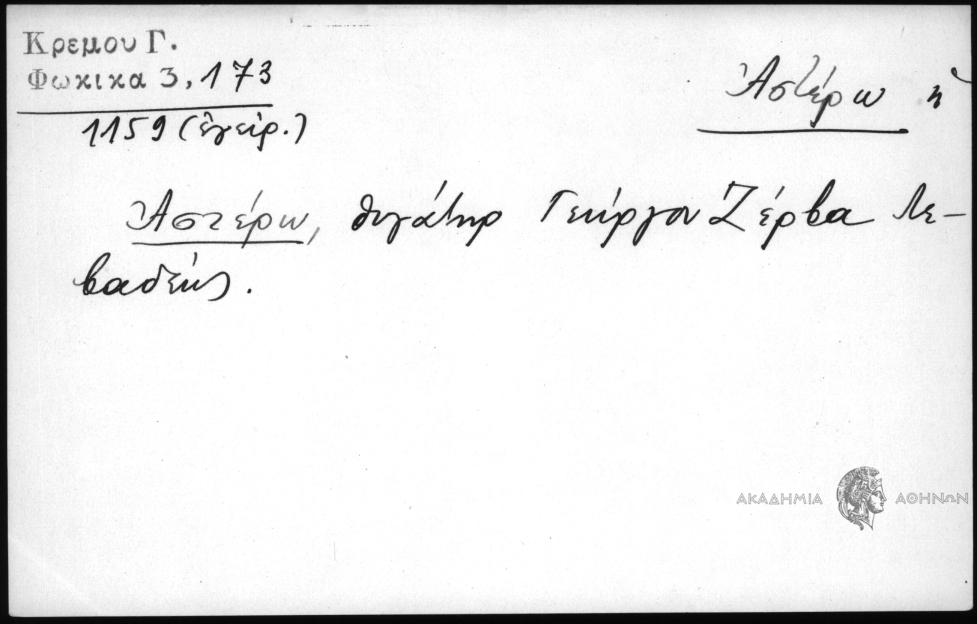 Κρεμου Γ.
Φωκικα 3, 173
1159 (ἔγειρ.)
Ἀστέρω ἡ
Ἀστέρω, θυγάτηρ Γεώργου Ζέρβα Λε-
βαδέως.
ΑΚΑΔΗΜΙΑ ΑΘΗΝΩΝ